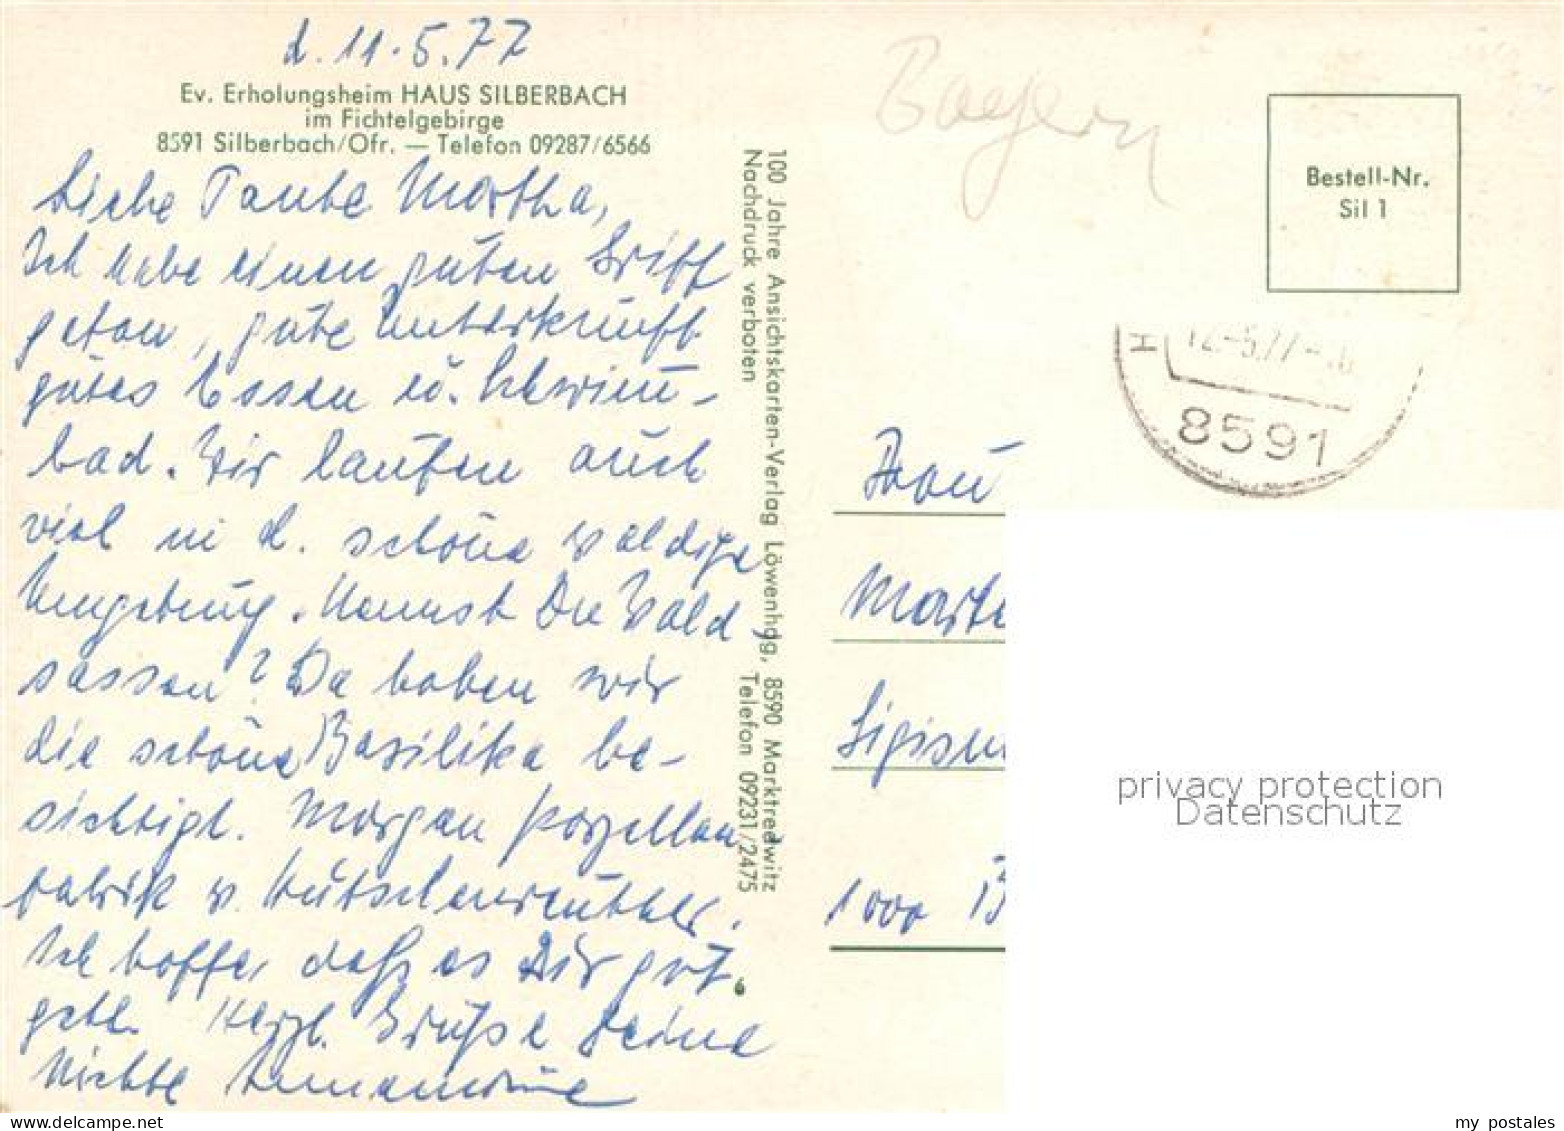 d. 11.5.77
Ev. Erholungsheim HAUS SILBERBACH
im Fichtelgebirge
8591 Silberbach/Ofr. — Telefon 09287/6566
Liebe Tante Martha,
Ich habe einen guten Griff
getan, gute Unterkunft
gutes Essen u. Schwimm-
bad. Wir laufen auch
viel in d. schöne waldige
Umgebung. Kennst Du Wald
sassen? Da haben wir
die schöne Basilika be-
sichtigt. Morgen Porzellan
fabrik v. Hutschenreuther.
Ich hoffe, daß es Dir gut
geht. Herzl. Grüße Deine
Nichte Annemarie
100 Jahre Ansichtskarten-Verlag Löwenhag, 8590 Marktredwitz
Nachdruck verboten Telefon 09231/2475
Bayern
Bestell-Nr.
Sil 1
12.-5.77
8591
Frau
Marta
Sigism
1000 B
privacy protection
Datenschutz
my postales